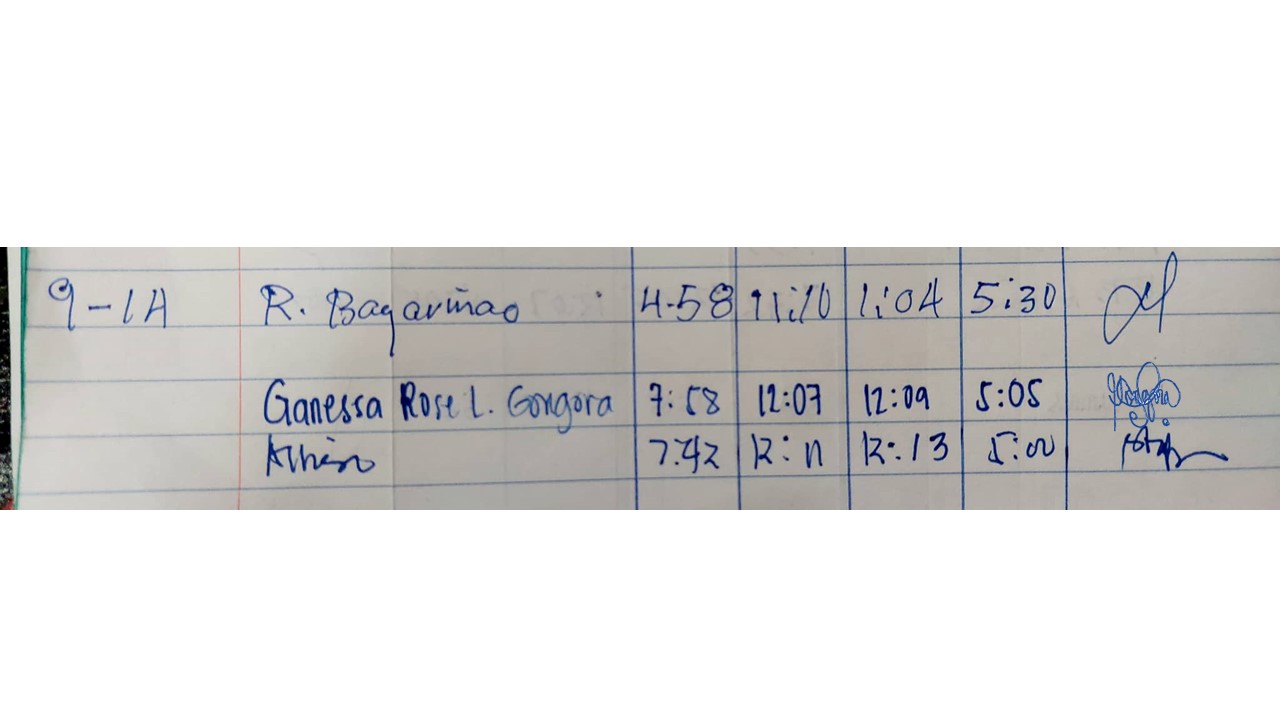 9-14 R. Bagariñao 4:58 11:10 1:04 5:30
Ganessa Rose L. Gongora 7:58 12:07 12:09 5:05
7:42 12:11 12:13 5:00